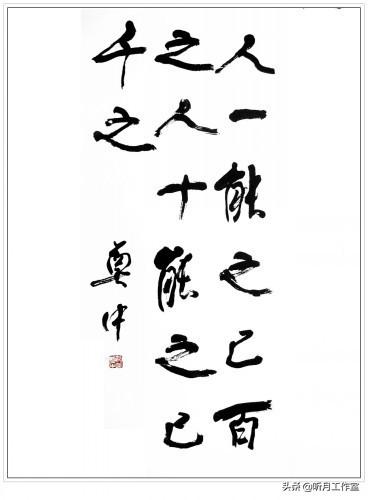 人一能之己百
之人十能之己
千之
奠中
头条 @听月工作室